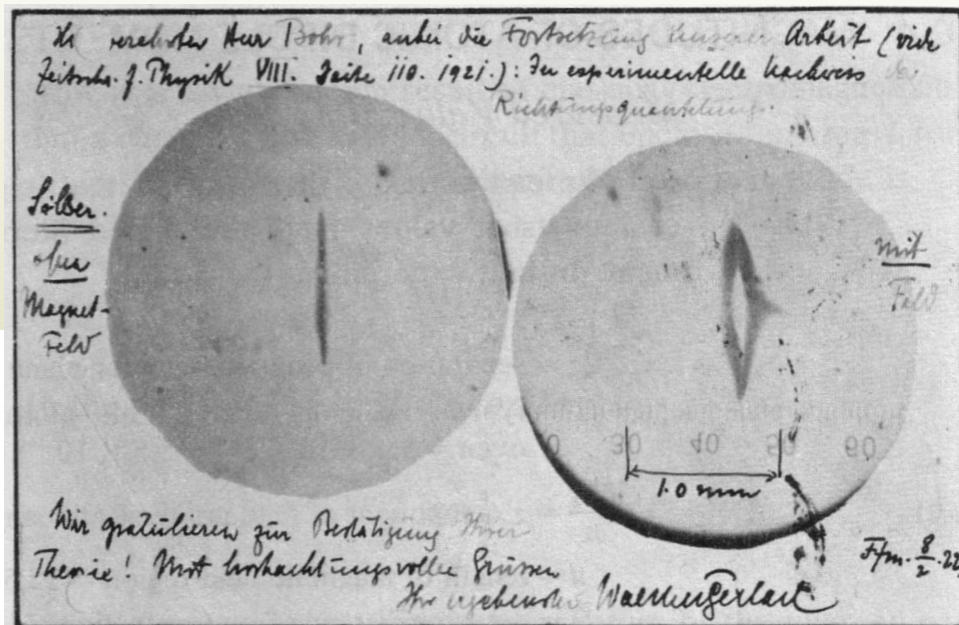 verehrter Herr Bohr, anbei die Fortsetzung unserer Arbeit (vide
Zeitschr. f. Physik VIII. Seite 110. 1921.): Der experimentelle Nachweis der
Richtungsquantelung.
Silber
ohne
Magnet-
Feld
mit
Feld
30 40 50 60
1.0 mm
Wir gratulieren zur Bestätigung Ihrer
Theorie! Mit hochachtungsvollen Grüssen
Ihr ergebenster Walther Gerlach
F/m. 8/2. 22.